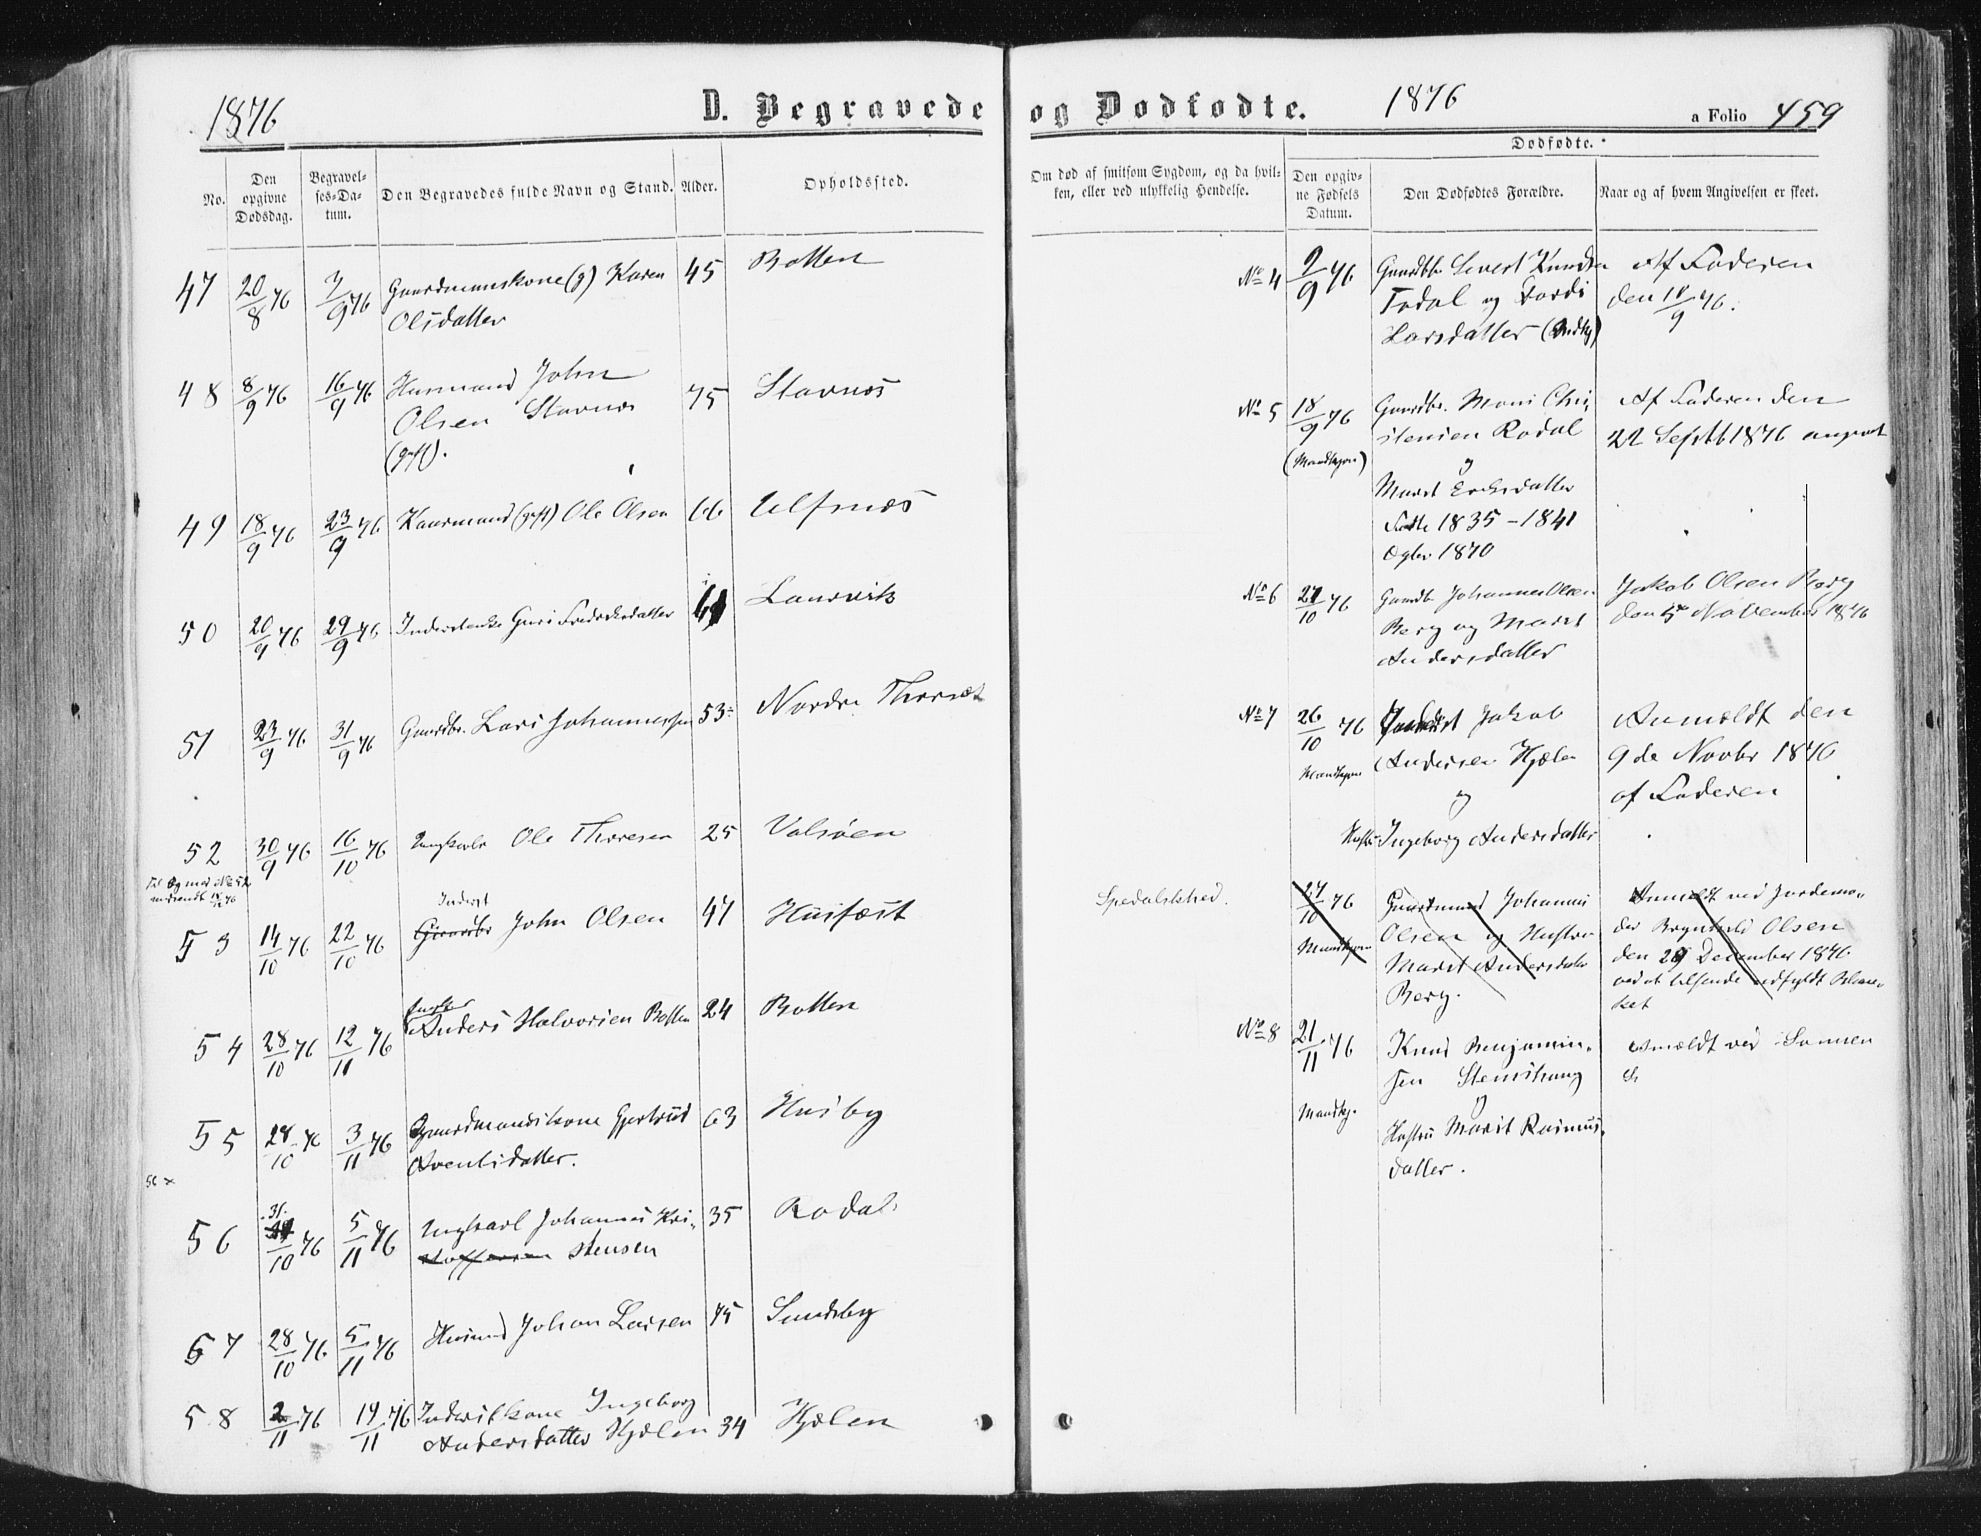 1876
D. Begravede og Dødfødte.
1876
a Folio 459
No.
Den opgivne Dødsdag.
Begravelses-Datum.
Den Begravedes fulde Navn og Stand.
Alder.
Opholdssted.
Om død af smitsom Sygdom, og da hvilken, eller ved ulykkelig Hendelse.
Dødfødte.
Den opgivne Fødsels Datum.
Den Dødfødtes Forældre.
Naar og af hvem Angivelsen er skeet.
47 20/8 76 7/9 76 Gaardmandskone (g) Karen 45 Botten
Olsdatter
48 8/9 76 16/9 76 Husmand John 75 Stavnes
Olsen Stavnes
(gift).
49 18/9 76 23/9 76 Kaarmand (gift) Ole Olsen 66 Ulfsnæs
50 20/9 76 29/9 76 Inderstenke Guri Fredriksdatter 61 Laurvik
51 23/9 76 31/9 76 Gaardbr. Lars Johannessen 53 Nordre Thorset
52 30/9 76 16/10 76 Ungkarl Ole Thoresen 25 Valsøen
Inderst
53 14/10 76 22/10 76 Gaardbr John Olsen 47 Husfæst
Spedalskhed.
54 28/10 76 12/11 76 Anders Halvorsen Botten 24 Botten
55 28/10 76 3/11 76 Gaardmandskone Gjertrud 63 Husby
Arentsdatter.
56 31/10 76 5/11 76 Ungkarl Johannes Kri- 35 Rodal
stoffersen stensen
57 28/10 76 5/11 76 Husmd Johan Larsen 45 Sundsby
58 2/11 76 19/11 76 Inderstkone Ingeborg
Andersdatter Hjælen 34 Hjælen
No 4 9/9 76 Gaardbr. Sivert Knudsen Af Faderen
Todal og Fordi den 18/9 76.
Larsdatter
No 5 18/9 76 Gaardbr. Mons Chri- Af Faderen den
stensen Rodal 22 Septb 1876
(Mandkjøn)
og
Marit Eriksdatter
Fødte 1835 - 1841
Ægtev 1870
No 6 27/10 76 Gaardb Johannes Olsen Jakob Olsen Berg
Berg og Marit den 5te November 1876
Andersdatter
No 7 26/10 76 Jakob Anmeldt den
Mandkjøn Andersen Hjælen 9de Novbr 1876
og af Faderen
Hustru Ingeborg Andersdatter
27/10 76 Gaardmand Johannes Anmeldt ved Jordemo-
Mandkjøn Olsen og Hustru der Olsen
Marit Andersdatter den 29 December 1876
Berg. ved at tilsende udfyldt Blan-
ket
No 8 21/11 76 Knud Benjamin- Anmeldt ved Sønnen
sen Stenshaug
Mandkj. og
Hustru Marit Rasmus-
datter.